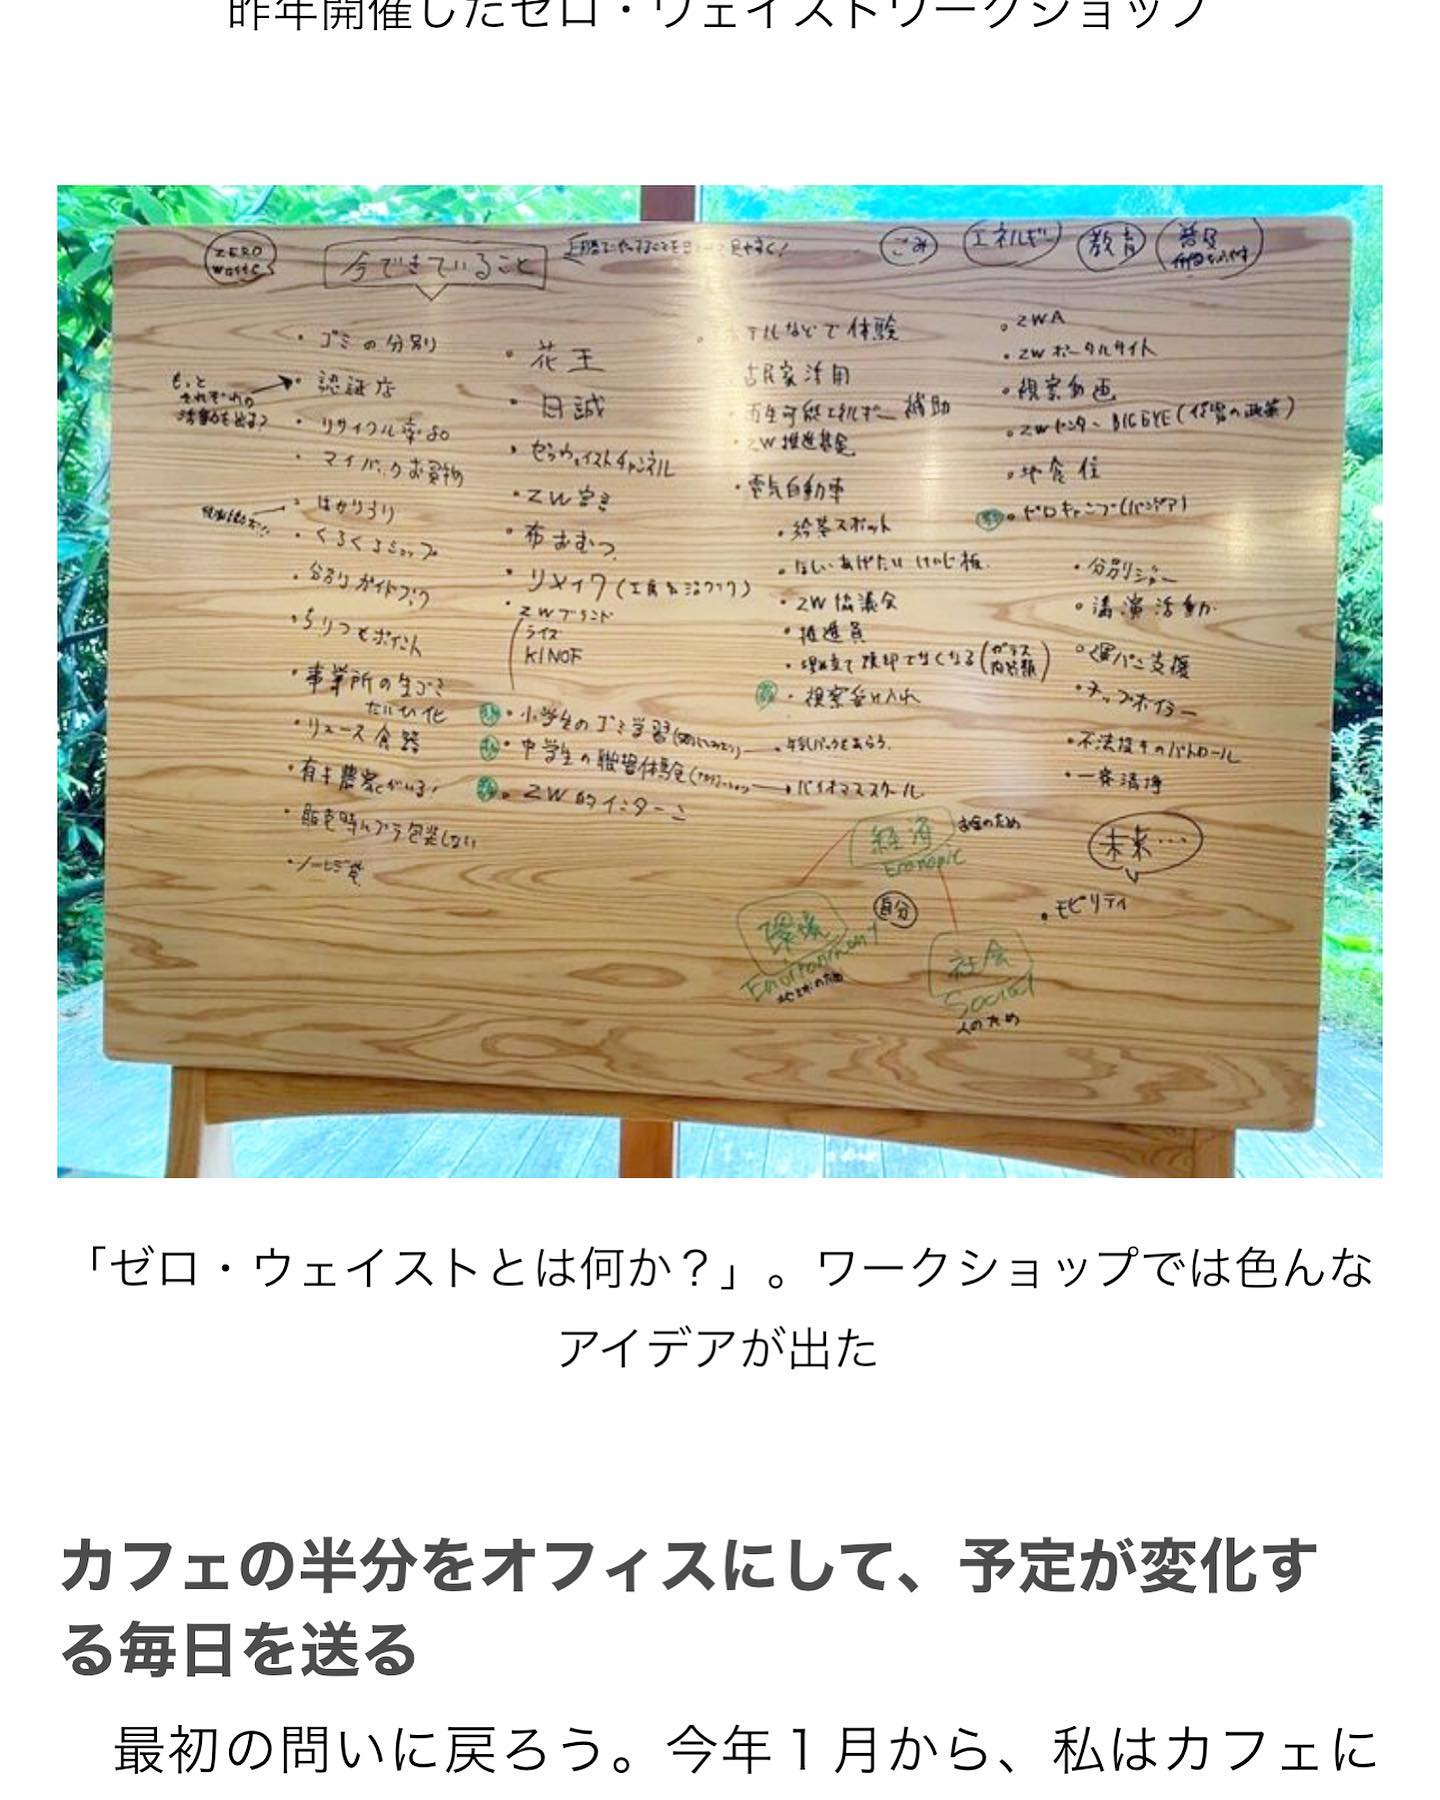 昨年開催したゼロ・ウェイストワークショップ
ZERO
waste
今できていること
ごみ
エネルギー
教育
・ゴミの分別
・認証店
もっと
それぞれの
・リサイクル率80
・マイバックお買物
・はかりうり
・くるくるショップ
・分別ガイドブック
・ちりつもポイント
・事業所の生ゴミ
たいひ化
・リユース食器
・有キ農家がいる!
・販売時にプラ包装しない
・ノーレジ袋
・花王
・日誠
・ゼロウェイストチャンネル
・ZW宣言
・布おむつ
・リメイク
・ZWブランド
ライズ
KINOF
・小学生のゴミ学習
・中学生の職場体験
・ZW的インターン
テルなどで体験
古民家活用
再生可能エネルギー補助
・ZW推進基金
・電気自動車
・給茶スポット
・ほしい・あげたい けいじ板
・ZW協議会
・推進員
・埋め立て 焼却でなくなる
・視察受け入れ
・牛乳パックをあらう
・バイオマススクール
・ZWA
・ZWポータルサイト
・視察動画
・ZWセンター BIG EYE
・地食住
・分別ショー
・講演活動
・運パン支援
・チップボイラー
・不法投キのパトロール
・一斉清掃
経済
Economic
お金のため
環境
Environment
地球のため
自分
社会
Social
人のため
未来…
・モビリティ
「ゼロ・ウェイストとは何か？」。ワークショップでは色んな
アイデアが出た
カフェの半分をオフィスにして、予定が変化す
る毎日を送る
最初の問いに戻ろう。今年１月から、私はカフェに